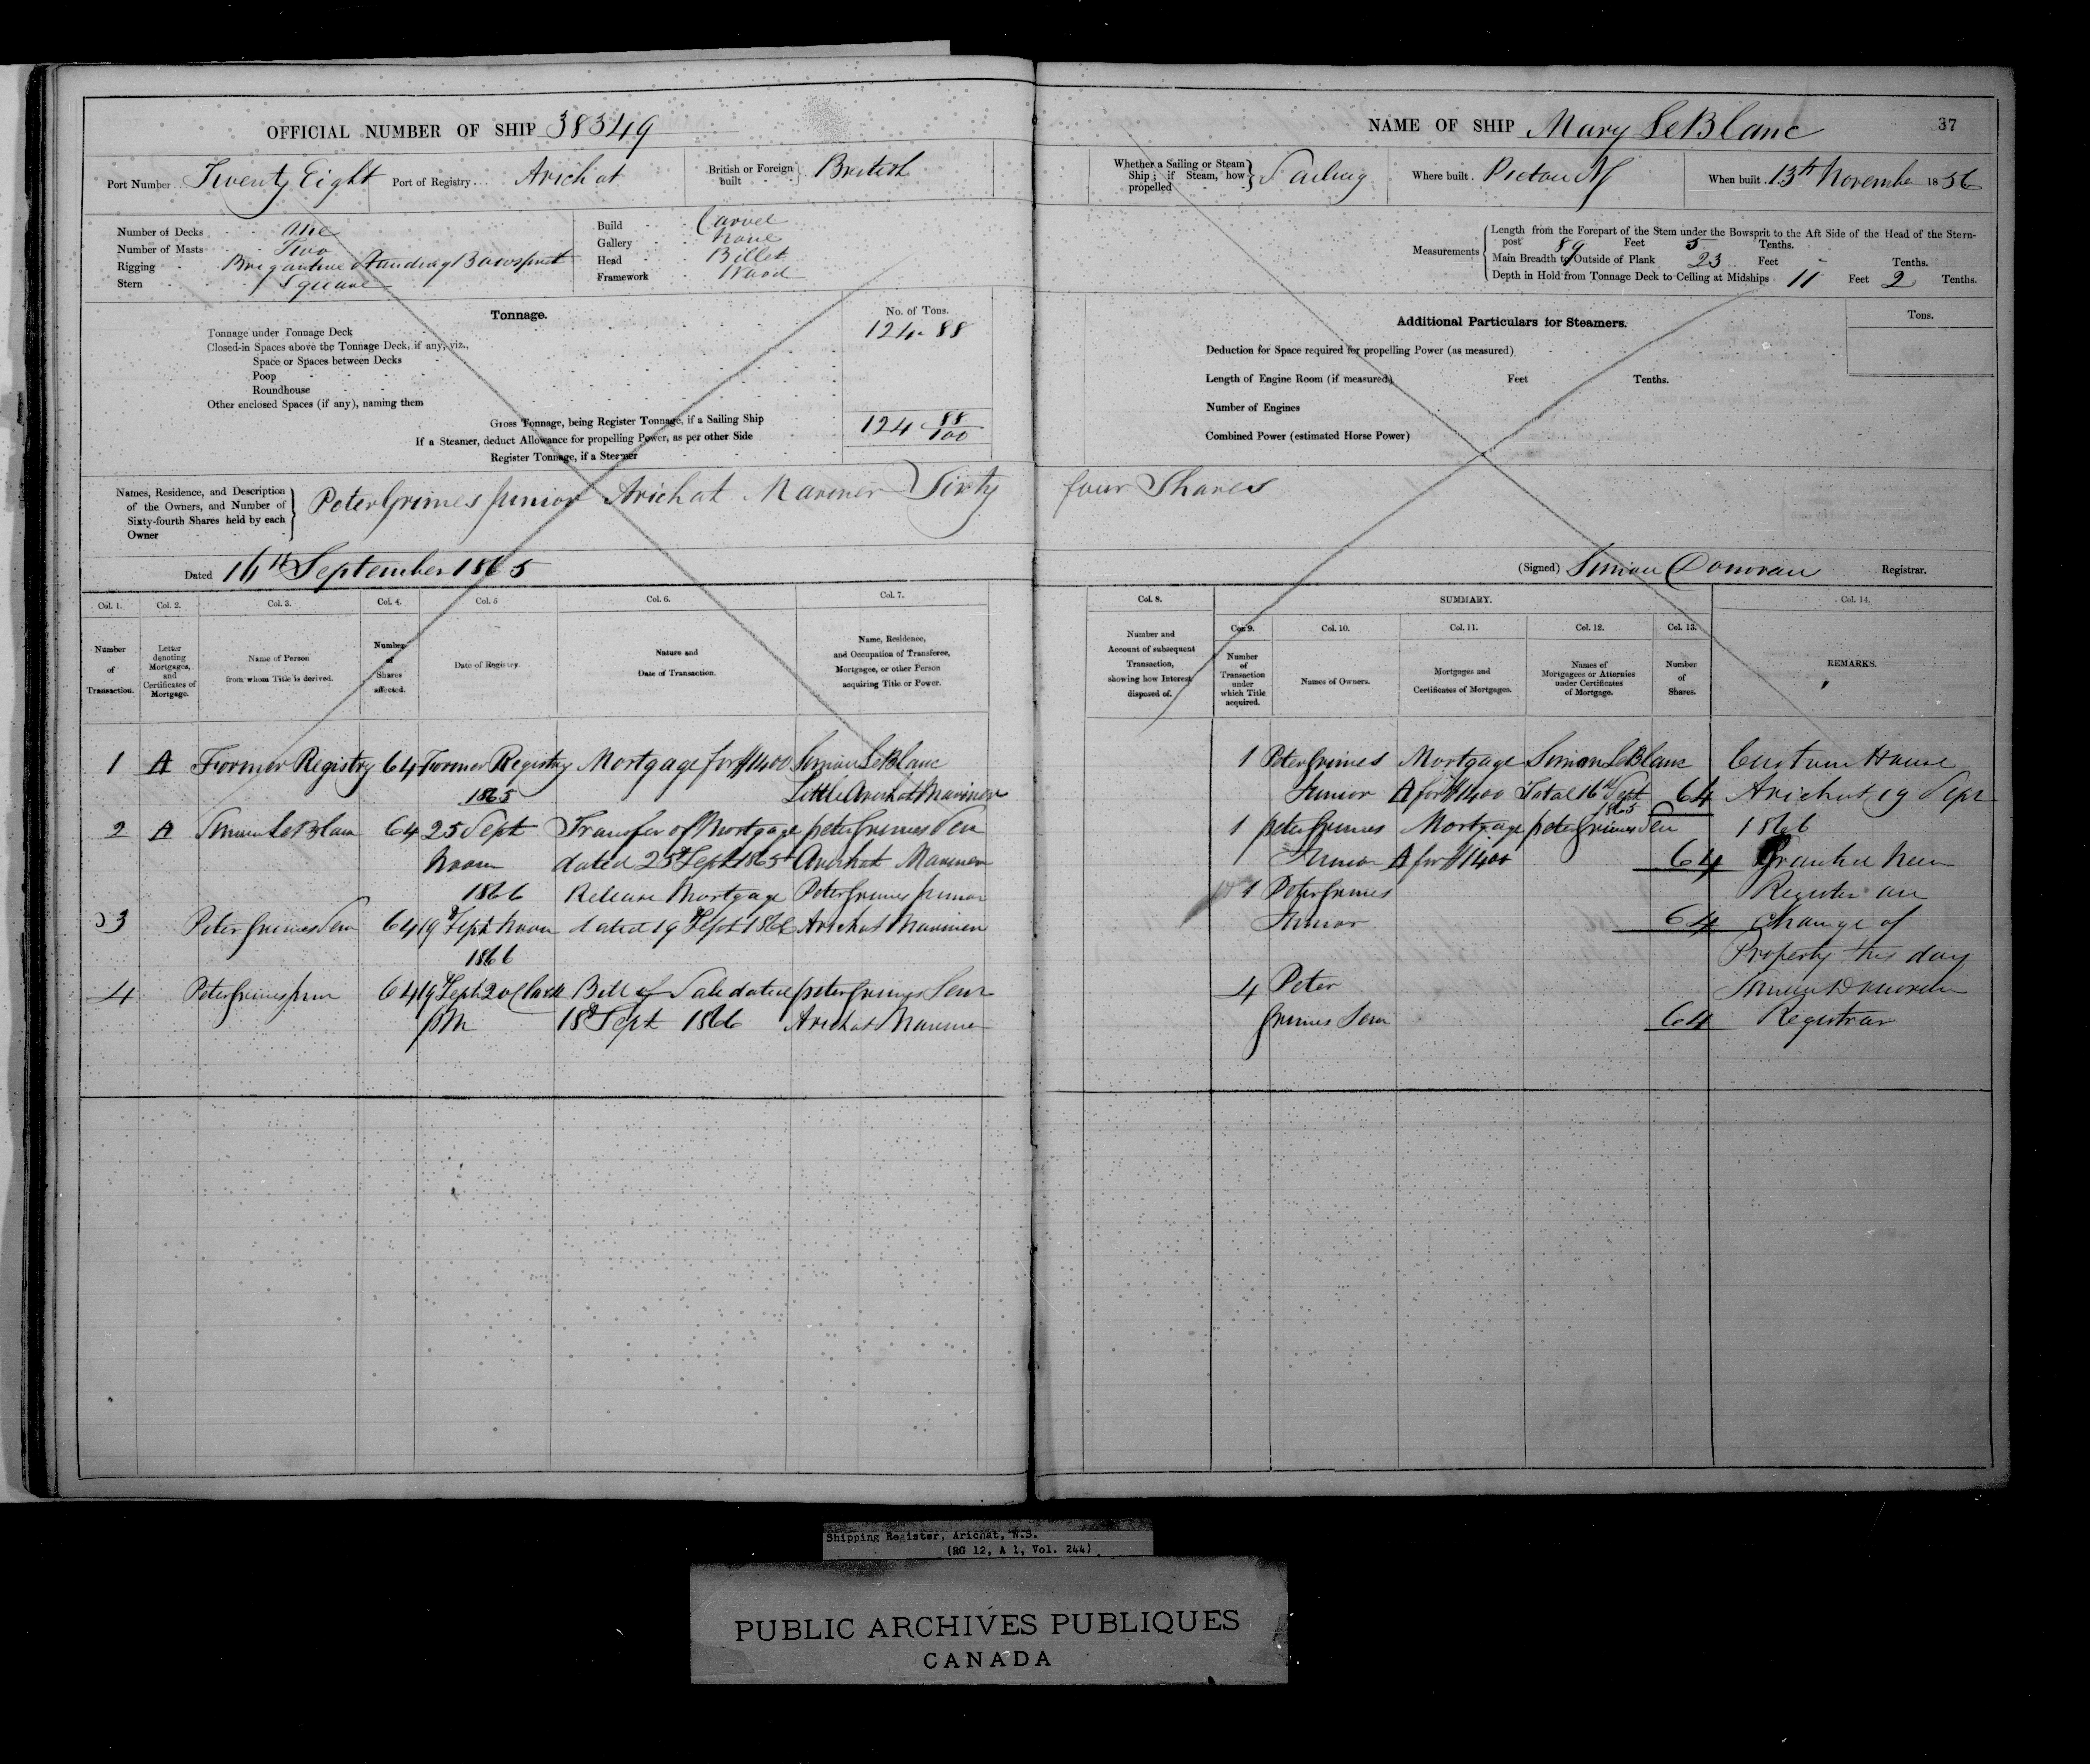 OFFICIAL NUMBER OF SHIP 38349
Port Number Twenty Eight Port of Registry Arichat British or Foreign built British
Number of Decks One
Number of Masts Two
Rigging Brigantine Standing Bowsprit
Stern Square
Build Carvel
Gallery None
Head Billet
Framework Wood
Tonnage.
No. of Tons.
Tonnage under Tonnage Deck 124.88
Closed-in Spaces above the Tonnage Deck, if any, viz.,
Space or Spaces between Decks
Poop
Roundhouse
Other enclosed Spaces (if any), naming them
Gross Tonnage, being Register Tonnage, if a Sailing Ship 124 88/100
If a Steamer, deduct Allowance for propelling Power, as per other Side
Register Tonnage, if a Steamer
Names, Residence, and Description of the Owners, and Number of Sixty-fourth Shares held by each Owner
Peter Grimes Junior Arichat Mariner Sixty
Dated 16th September 1865
Col. 1. Col. 2. Col. 3. Col. 4. Col. 5 Col. 6. Col. 7.
Number of Transaction.
Letter denoting Mortgages, and Certificates of Mortgage.
Name of Person from whom Title is derived.
Number of Shares affected.
Date of Registry
Nature and Date of Transaction.
Name, Residence, and Occupation of Transferee, Mortgagee, or other Person acquiring Title or Power.
1 A Former Registry 64 Former Registry Mortgage for $1400 Simon LeBlanc
1865 Little Arichat Mariner
2 A Simon LeBlanc 64 25 Sept Transfer of Mortgage peter Grimes Sen
Noon dated 25th Sept 1865 Arichat Mariner
1866 Release Mortgage Peter Grimes Junior
3 Peter Grimes Sen 64 19th Sept Noon dated 19th Sept 1866 Arichat Mariner
1866
4 Peter Grimes Junr 64 19th Sept 2 o Clock Bill of Sale dated peter Grimes Senr
PM 18th Sept 1866 Arichat Mariner
NAME OF SHIP Mary LeBlanc 37
Whether a Sailing or Steam Ship; if Steam, how propelled Sailing Where built Pictou NS When built 13th November 1856
Measurements
Length from the Forepart of the Stem under the Bowsprit to the Aft Side of the Head of the Stern-
post 89 Feet 5 Tenths.
Main Breadth to Outside of Plank 23 Feet - Tenths.
Depth in Hold from Tonnage Deck to Ceiling at Midships 11 Feet 2 Tenths.
Additional Particulars for Steamers.
Tons.
Deduction for Space required for propelling Power (as measured)
Length of Engine Room (if measured) Feet Tenths.
Number of Engines
Combined Power (estimated Horse Power)
four Shares
(Signed) Simon Donovan Registrar.
Col. 8. SUMMARY. Col. 14.
Col. 9. Col. 10. Col. 11. Col. 12. Col. 13.
Number and Account of subsequent Transaction, showing how Interest disposed of.
Number of Transaction under which Title acquired.
Names of Owners.
Mortgages and Certificates of Mortgages.
Names of Mortgagees or Attornies under Certificates of Mortgage.
Number of Shares.
REMARKS.
1 Peter Grimes Mortgage Simon LeBlanc Custom House
Junior A for $1400 Total 16th Sept 1865 64 Arichat 19 Sept
1 peter Grimes Mortgage peter Grimes Sen 1866
Junior A for $1400 64 Granted New
1 Peter Grimes Register on
Junior 64 Change of
Property this day
4 Peter Simon Donovan
Grimes Senr 64 Registrar
Shipping Register, Arichat, N.S.
(RG 12, A 1, Vol. 244)
PUBLIC ARCHIVES PUBLIQUES
CANADA